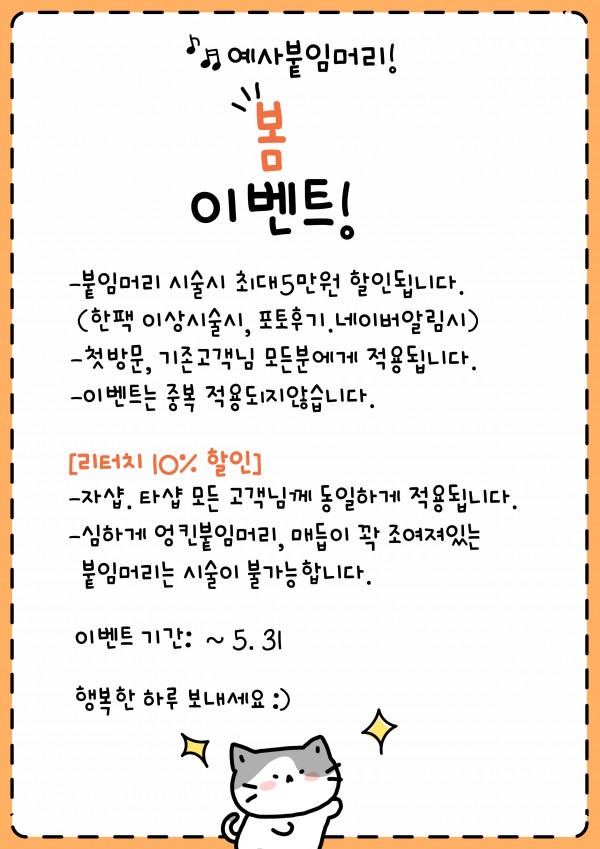 예사붙임머리!
봄
이벤트!
-붙임머리 시술시 최대5만원 할인됩니다.
(한팩 이상시술시, 포토후기.네이버알림시)
-첫방문, 기존고객님 모든분에게 적용됩니다.
-이벤트는 중복 적용되지않습니다.
[리터치 10% 할인]
-자샵. 타샵 모든 고객님께 동일하게 적용됩니다.
-심하게 엉킨붙임머리, 매듭이 꽉 조여져있는
붙임머리는 시술이 불가능합니다.
이벤트 기간: ~ 5. 31
행복한 하루 보내세요 :)